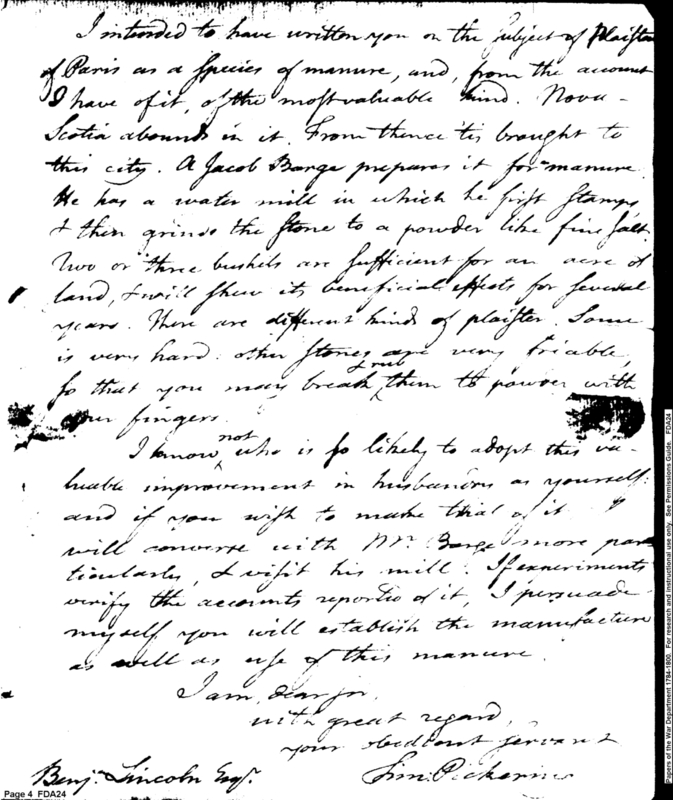 I intended to have written you on the subject of plaister
of Paris as a species of manure, and, from the account
I have of it, of the most valuable kind. Nova-
Scotia abounds in it. From thence 'tis brought to
this city. A Jacob Barge prepares it for manure.
He has a water mill in which he first stamps
& then grinds the stone to a powder like fine salt.
Two or three bushels are sufficient for an acre of
land, & will shew its beneficial effects for several
years. There are different kinds of plaister. Some
is very hard: other stones are very friable,
& rub
so that you may break ‸ them to powder with
your fingers.
not
I know ‸ who is so likely to adopt this va-
luable improvement in husbandry as yourself:
and if you wish to make trial of it I
will converse with Mr. Barge more par
ticularly, & visit his mill. If experiments
verify the accounts reported of it, I persuade
myself you will establish the manufacture
as well as use of this manure.
I am, dear sir,
with great regard,
your obedient servant
Tim: Pickering
Benj. Lincoln Esqr.
Page 4 FDA24
Papers of the War Department 1784-1800. For research and instructional use only. See Permissions Guide. FDA24